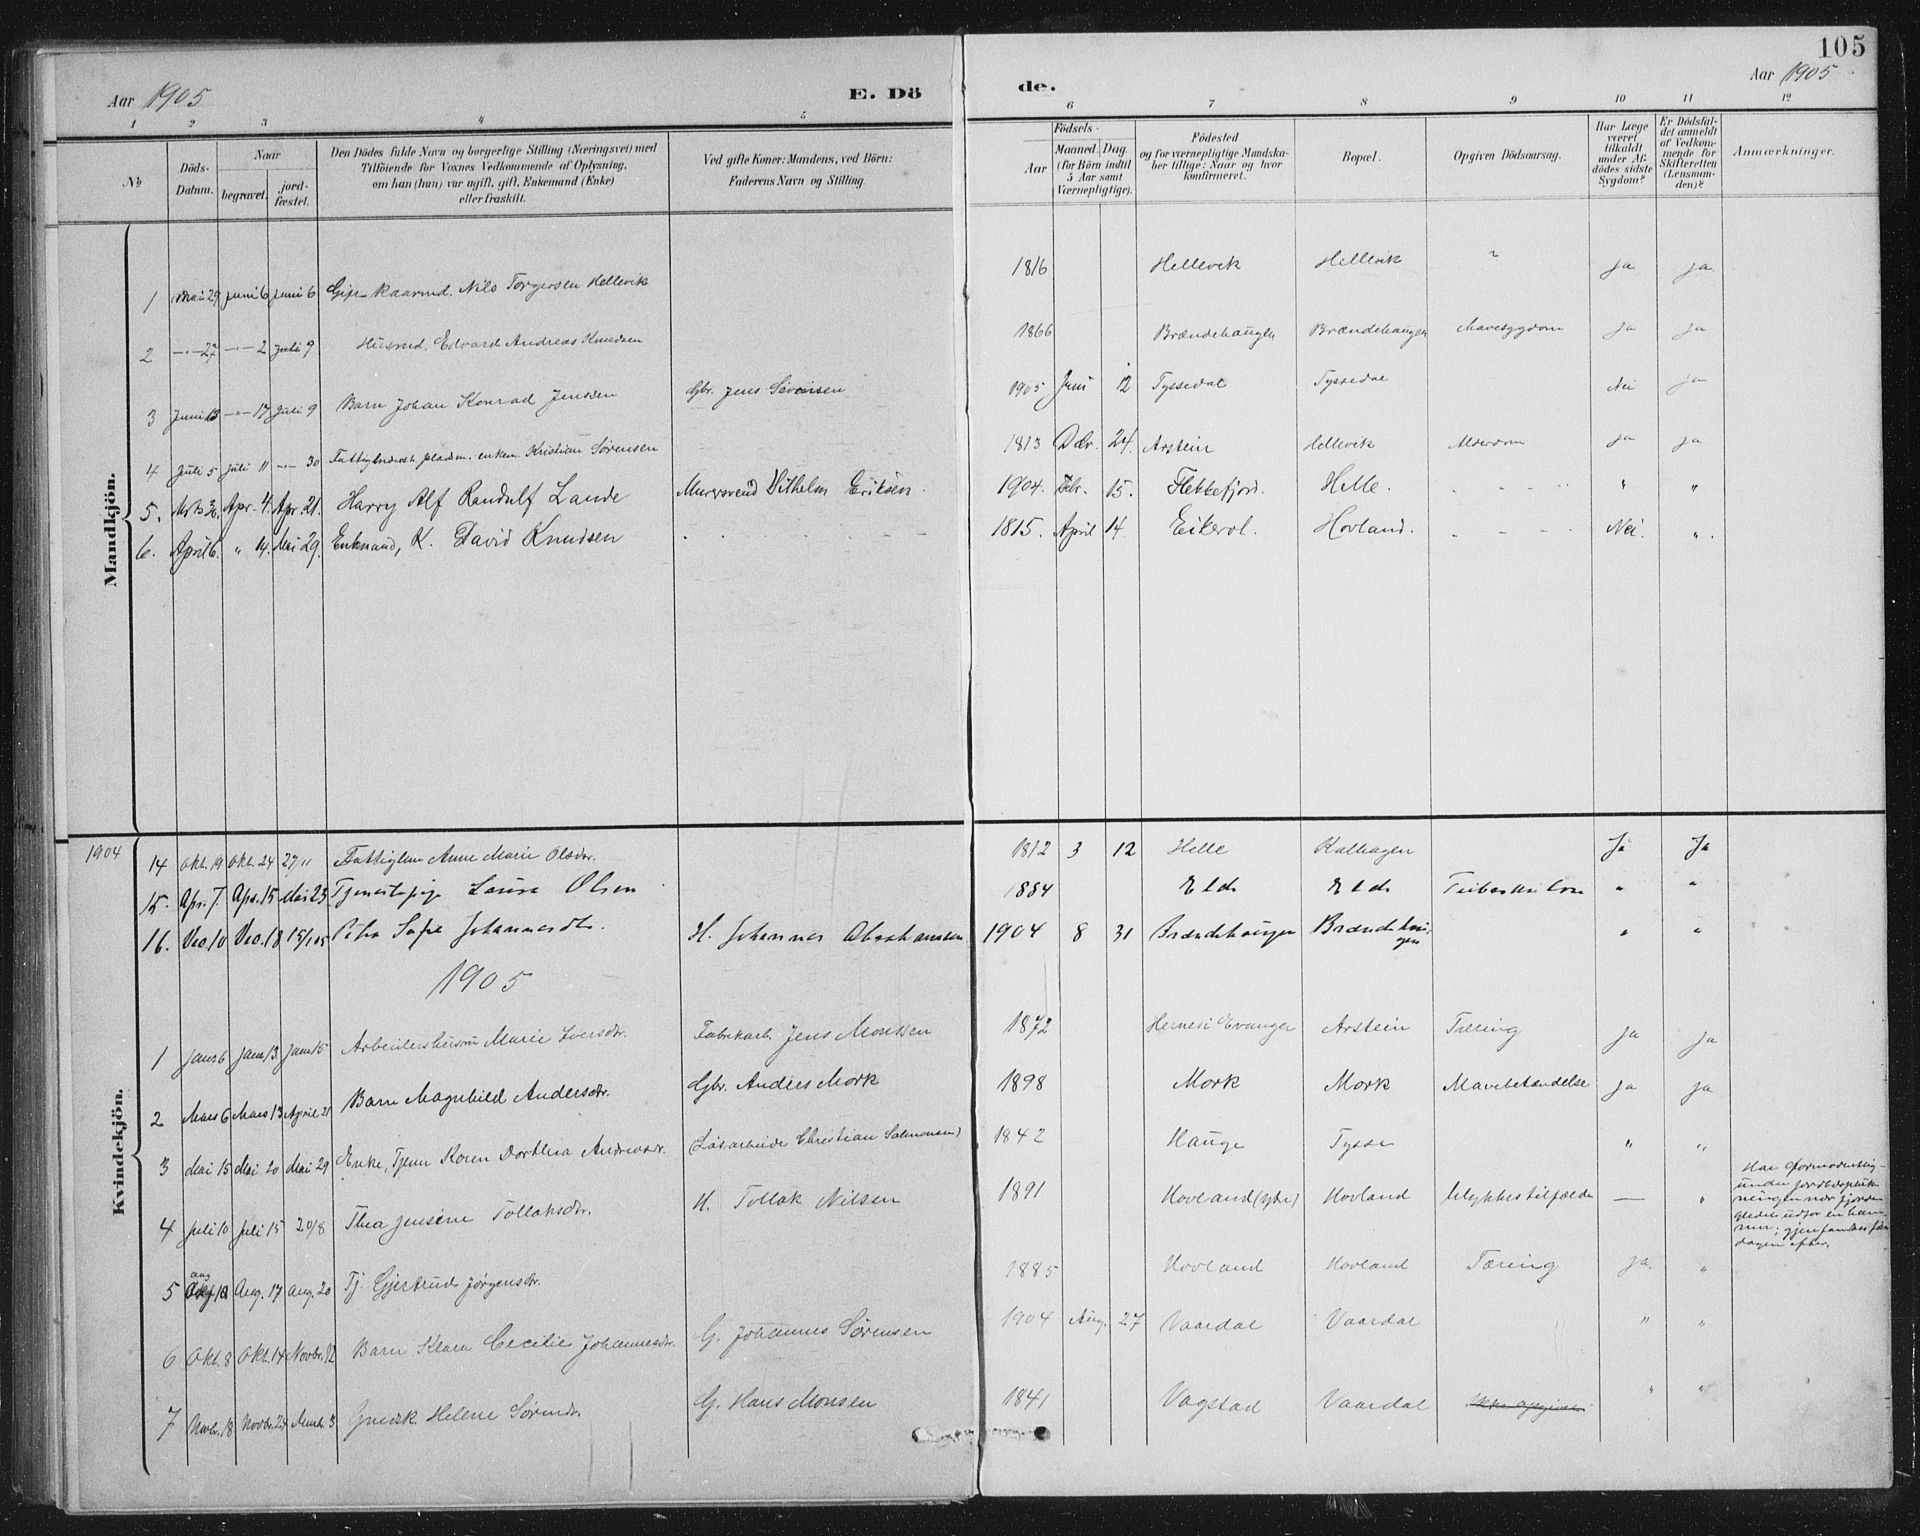 105
Aar 1905
E. Dö
de.
Aar 1905
1 2 3 4 5 6 7 8 9 10 11 12
№
Döds-Datum.
Naar
begravet.
jord-fæstet.
Den Dödes fulde Navn og borgerlige Stilling (Næringsvei) med
Tilföiende for Voxnes Vedkommende af Oplysning,
om han (hun) var ugift, gift, Enkemand (Enke)
eller fraskilt.
Ved gifte Koner: Mandens, ved Börn:
Faderens Navn og Stilling.
Födsels-
Aar
Maaned. Dag.
(for Börn indtil
5 Aar samt
Værnepligtige).
Födested
og for værnepligtige Mandska-
ber tillige: Naar og hvor
konfirmeret.
Bopæl.
Opgiven Dödsaarsag.
Har Læge
været
tilkaldt
under Af-
dödes sidste
Sygdom?
Er Dödsfal-
det anmeldt
af Vedkom-
mende for
Skifteretten
(Lensman-
den)?
Anmærkninger.
Mandkjön.
1 Mai 29 Juni 6 Juni 6 Nils Torgersen Hellevik 1816 Hellevik Hellevik " ja ja
2 -"- 27 -"- 2 Juli 9 Husmd. Edvard Andreas Knudsen 1866 Brændehaugen Brændehaugen Mavesygdom ja ja
3 Juni 13 -"- 17 Juli 9 Barn Johan Konrad Jenssen Gbr. Jens Severinsen 1905 Juni 12 Tyssedal Tyssedal Nei ja
4 Juli 5 Juli 11 -"- 30 Kristian Sørensen 1813 Decbr. 24 Arstein Hellevik Alderdom ja ja
5. Apr. 4. Apr. 21. Harry Alf Randulf Lande Murersvend Vilhelm Eriksen. 1904. 15. Flekkefjord. Helle. " "
6. April 6. " 14. Mai 29. Enkmand, K. David Knudsen 1815. April 14 Eikerol. Hovland. Nei. ".
Kvindekjön.
1904
14 Okt. 19 Okt. 24 27/11 Fattiglem Anne Marie Olsdtr. 1812 3 12 Helle Kalhagen Ja Ja
15. Apr. 7. Apr. 15 Mai 23 Tjenestepige Laura Olsen 1884 Elde Elde Tuberkulose " "
16. Dec. 10 Dec. 18 15/1 05 Petra Sofie Johannesdtr. H. Johannes Abrahamsen 1904 8 31 Brændehaugen Brændehaugen " "
1905
1 Janr 6 Janr 13. Janr 15 Arbeiderhustru Marie Iversdtr. Fabrikarb. Jens Monssen 1872 Evanger Arstein Tæring ja ja
2 Mars 6 Mars 13 April 21 Barn Magnhild Andersdtr. Gbr. Anders Mork 1898 Mork Mork Mavebetændelse ja ja
3 Mai 15 Mai 20 Mai 29 Enke, Tjener Karen Dorthea Andreasdtr. Løsarbeide Christian Salmonsen) 1842 Hauge Tysse " "
4 Juli 10 Juli 15 20/8 Thea Jensine Tollaksdtr. H. Tollak Nilsen 1891 Hovland (ytre) Hovland Ulykkestilfælde — "
Har formodentlig
under jordbærpluk-
ningen nær fjorden
gledet ud for en ham-
mer; gjenfandtes først
dagen efter.
5 Aug 10 Aug. 17 Aug. 20 Tj. Gjertrud Jørgensdtr. 1885 Hovland Hovland Tæring ja. "
6 Okt. 8 Okt. 14 Novbr. 12 Barn Klara Cecilie Johannesdtr. G. Johannes Sørensen 1904 Aug. 27 Vaardal Vaardal " "
7 Novbr. 18 Novbr. 24 3 Helene Sørensdtr. G. Hans Monsen 1841 Vagstad Vaardal Ikke opgivet " "